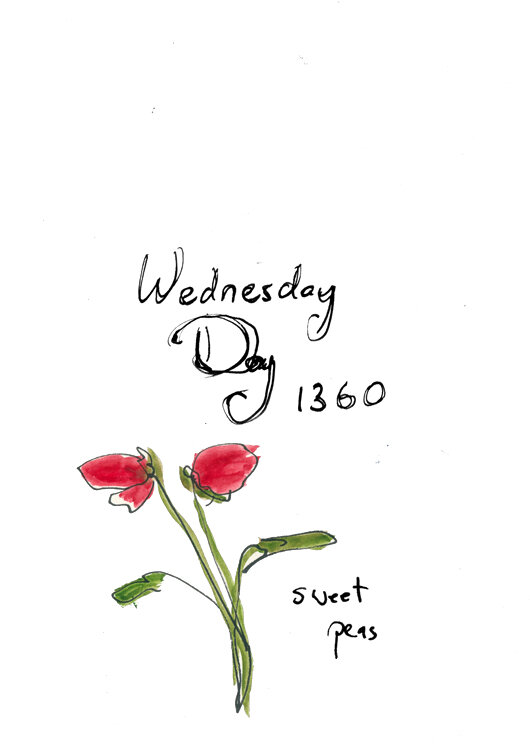 Wednesday
Day 1360
sweet
peas